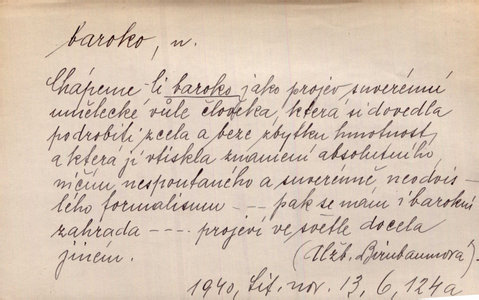 baroko, n.
Chápeme-li baroko jako projev suverénní
umělecké vůle člověka, která si dovedla
podrobiti zcela a beze zbytku hmotnost
a která jí vtiskla znamení absolutního,
ničím nespoutaného a suverénně neodvis-
lého formalismu --- pak se nám i barokní
zahrada ---- projeví ve světle docela
jiném. (Alžb. Birnbaumová).
1940, Lit. nov. 13, 6, 124a